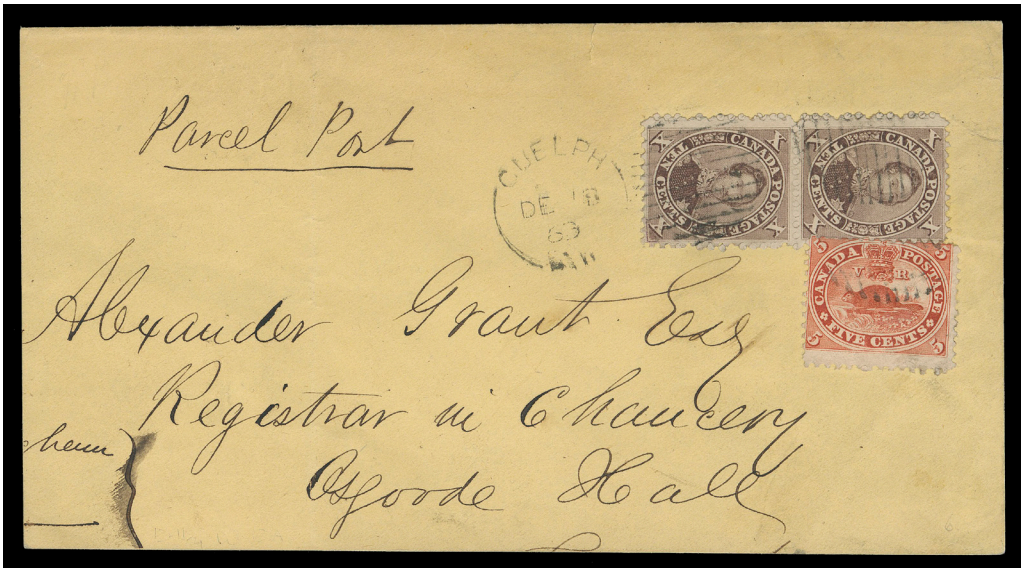 Parcel Post
GUELPH
DE 18
63
X CANADA POSTAGE X
X TEN CENTS X
X CANADA POSTAGE X
X TEN CENTS X
5 CANADA POSTAGE 5
V R
5 FIVE CENTS 5
Alexander Grant Esq
Registrar in Chancery
Osgoode Hall